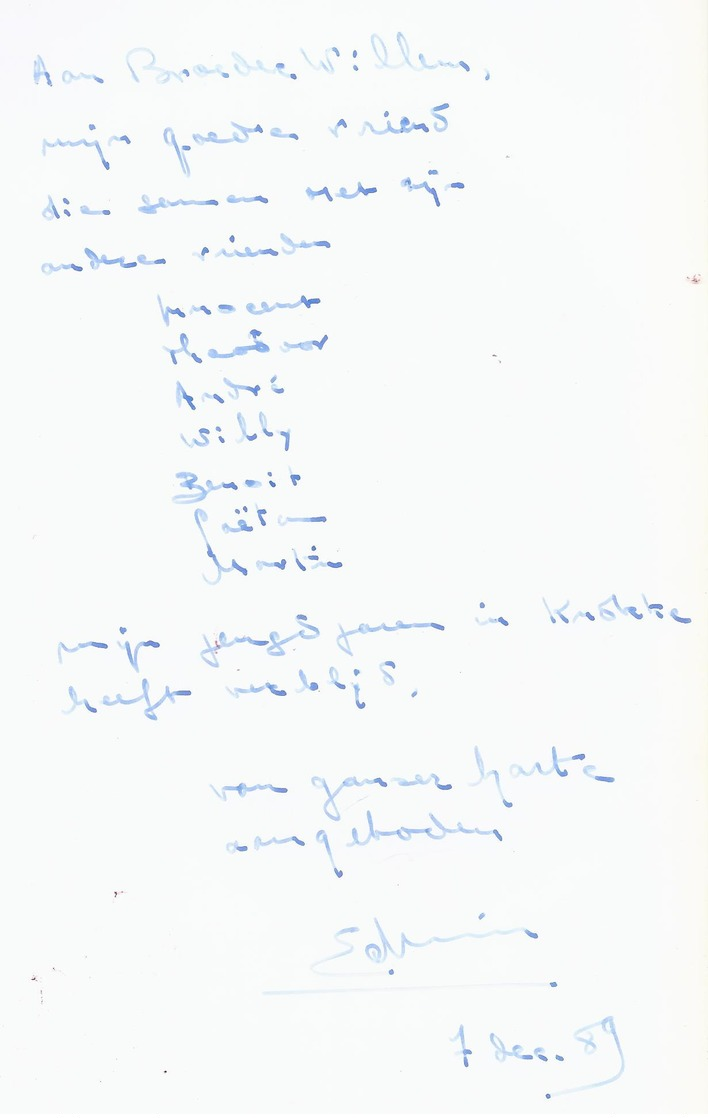 Aan Broeder Willem,
mijn goede vriend
die samen met zijn
andere vrienden
Innocent
Theodoor
André
Willy
Benoit
Gaëtan
Martin
mijn jeugdjaren in Knokke
heeft verblijd.
van ganser harte
aangeboden
Edwin
7 dec. 89